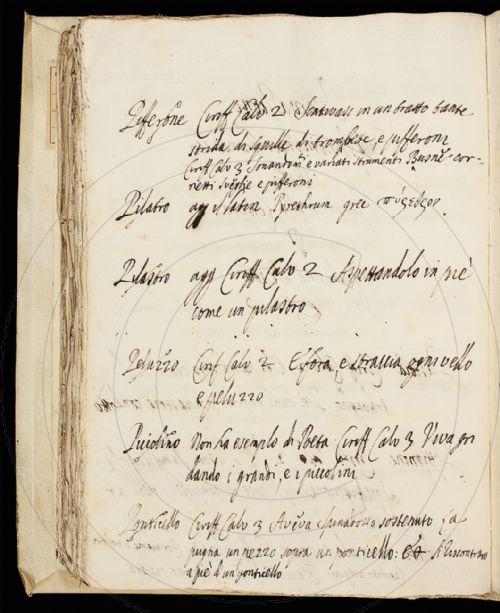 Pifferone Ciriff Calv 2 Sentivasi in un tratto tante
strida di squille di trombette, e pifferoni
Ciriff Calv 3 Sonandovi e variati strumenti Busne cor-
netti sveglie e pifferoni
Pilatro agg il latin Pyrethrum grec πύρεθρον
Pilastro agg Ciriff Calv 2 Aspettandolo in piè
come un pilastro
Peluzzo Cirif Calv 2 E fora, e straccia ogni vello
e peluzzo
Piccolino Non ha esemplo di Poeta Ciriff Calv 3 Viva gri
dando i grandi, e i piccolini
Ponticello Ciriff Calv 3 Aveva Spinardosso sostenuto La
pugna un pezzo sopra un ponticello: Riscontrato
a piè d'un ponticello